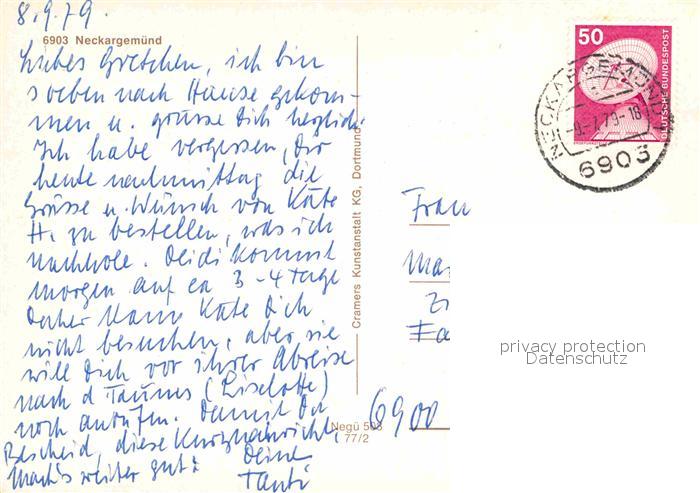 8.9.79.
6903 Neckargemünd
Liebes Gretchen, ich bin
soeben nach Hause gekom-
men u. grüsse Dich herzlich.
Ich habe vergessen, Dir
heute nachmittag die
Grüsse u. Wünsch von Käte
H. zu bestellen, was ich
nachhole. Heidi kommt
morgen auf ca 3-4 Tage
Daher kann Käte Dich
nicht besuchen, aber sie
will Dich vor ihrer Abreise
nach d Taunus (Liselotte)
noch anrufen. Damit Du
Bescheid, diese Kurznachricht.
Mach's weiter gut!
Deine
Tanti
Cramers Kunstanstalt KG, Dortmund
Negü 503
77/2
50
DEUTSCHE BUNDESPOST
NECKARGEMÜND
79-18
6903
Frau
6900
privacy protection
Datenschutz